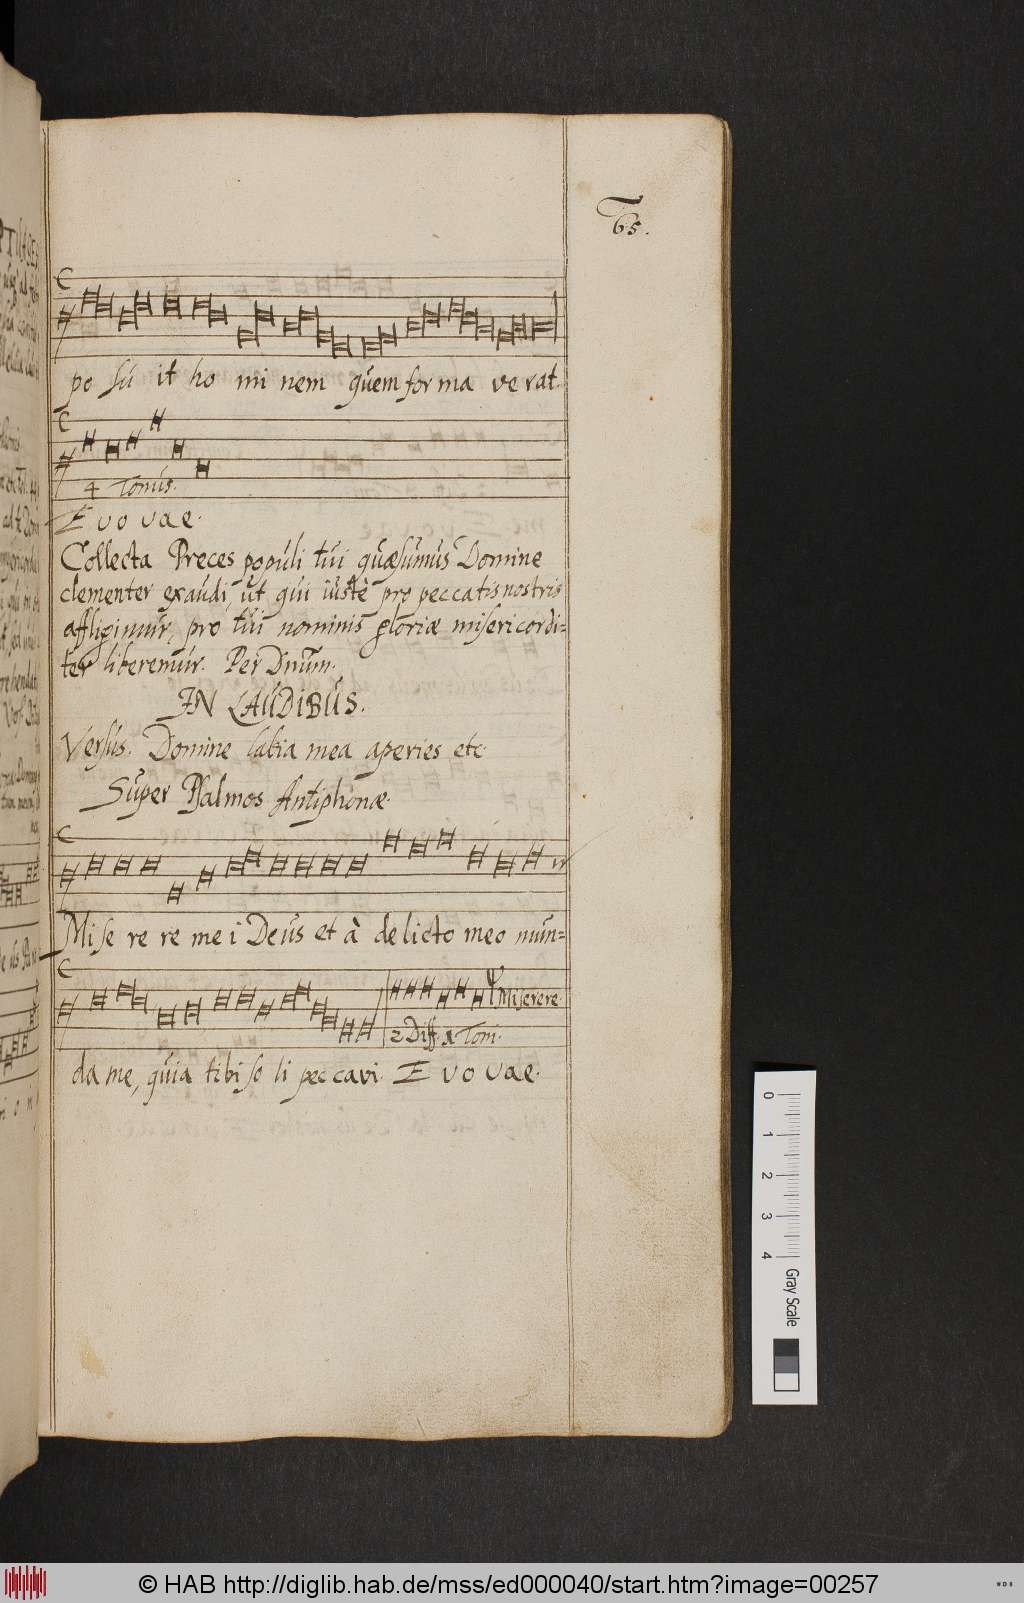 65.
po sú it ho mi nem quem for ma ve rat.
4 Tonús.
E v o v a e.
Collecta Preces popúli túi quæsúmús Domine
clementer exaúdi, út qúi iústè pro peccatis nostris
affligimúr, pro túi nominis gloriæ misericordi=
ter liberemúr. Per Dnúm.
IN LAÚDIBÚS.
Versús. Domine labia mea aperies etc.
Súper Psalmos Antiphonæ.
Mi se re re me i Deús et à delicto meo mún=
Miserere.
2 Diff. 1 Toni.
da me, qúia tibi so li peccavi. E v o v a e.
0 1 2 3 4 Gray Scale
© HAB http://diglib.hab.de/mss/ed000040/start.htm?image=00257